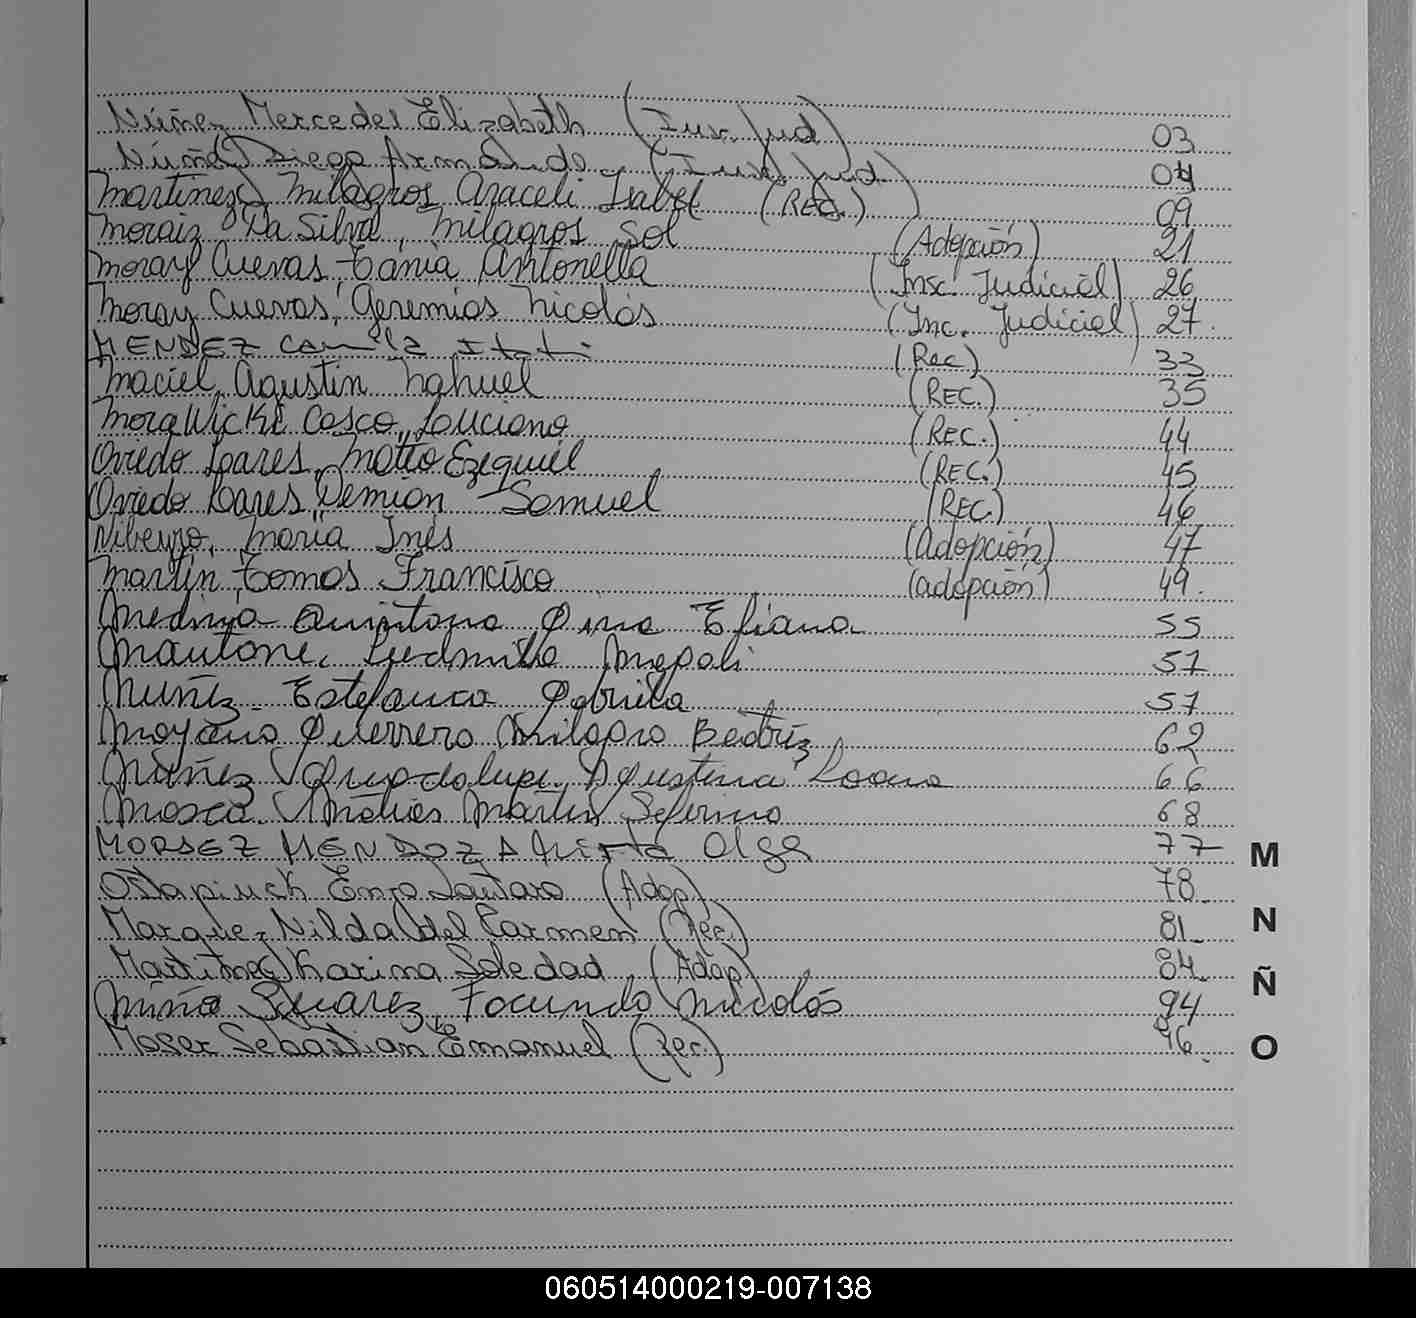 Núñez Mercedes Elizabeth (Insc. Jud) 03
Núñez Diego Armando (Insc. Jud.) 04
Martínez, Milagros Araceli Isabel (REC.) 09
Moraiz Da Silva, Milagros Sol (Adopción) 21
Moray Cuevas, Tania Antonella (Insc. Judicial) 26
Moray Cuevas, Geremias Nicolás (Inc. Judicial) 27.
MENDEZ Camila Itatí (Rec) 33
Maciel, Agustin Nahuel (REC.) 35
Morawicki Casco, Luciano (REC.) 44
Oviedo Loares, Matio Ezequiel (REC.) 45
Oviedo Loares, Demian Samuel (REC.) 46
María Inés (Adopción) 47
Martin, Tomas Francisco (adopción) 49.
Medina Quintana 55
Mautone, Ludmila 57
Nuñez Estefanía Gabriela 57
Moyano Guerrero Milagro Beatriz 62
Nuñez Guadalupe Agustina 66
Mosca Matías Martin 68
MENDOZA Olga 77
Ostapiuck Enzo Lautaro (Adop) 78
Marquez Nilda del Carmen (Rec.) 81
Martínez Karina Soledad (Adop) 84
Suarez, Facundo Nicolás 94
Moser Sebastian Emanuel (Rec.) 96.
M
N
Ñ
O
060514000219-007138